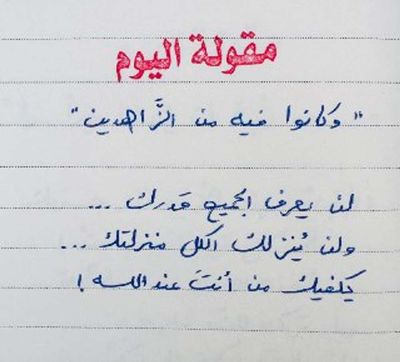 مقولة اليوم
"وكانوا فيه من الزَّاهدين"
لن يعرف الجميع قدرك ...
ولن يُنزلك الكل منزلتك ...
يكفيك من أنتَ عند الله !